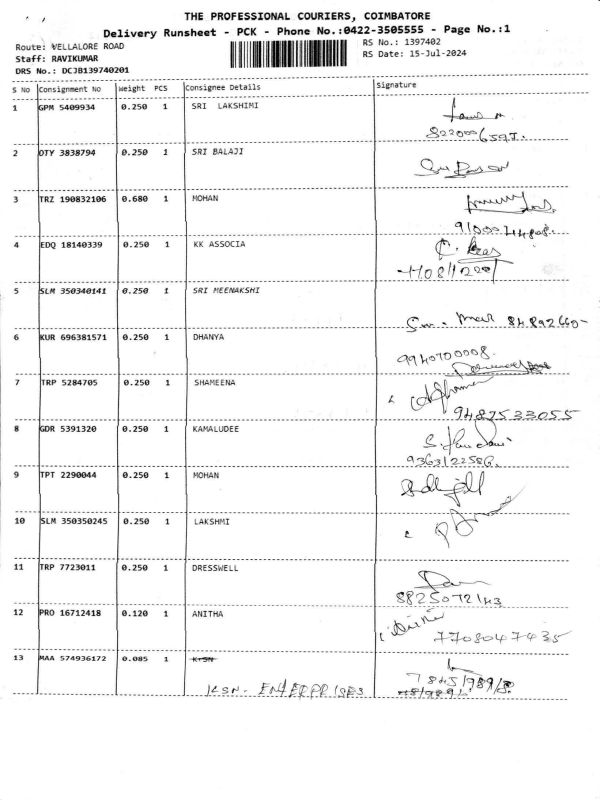 THE PROFESSIONAL COURIERS, COIMBATORE
Delivery Runsheet - PCK - Phone No.:0422-3505555 - Page No.:1
Route: VELLALORE ROAD
RS No.: 1397402
Staff: RAVIKUMAR
RS Date: 15-Jul-2024
DRS No.: DCJB139740201
S No Consignment No Weight PCS Consignee Details Signature
1 GPM 5409934 0.250 1 SRI LAKSHIMI
2 OTY 3838794 0.250 1 SRI BALAJI
3 TRZ 190832106 0.680 1 MOHAN
4 EDQ 18140339 0.250 1 KK ASSOCIA
5 SLM 350340141 0.250 1 SRI MEENAKSHI
6 KUR 696381571 0.250 1 DHANYA
9940700008.
7 TRP 5284705 0.250 1 SHAMEENA
9487533055
8 GDR 5391320 0.250 1 KAMALUDEE
9363122586.
9 TPT 2290044 0.250 1 MOHAN
10 SLM 350350245 0.250 1 LAKSHMI
11 TRP 7723011 0.250 1 DRESSWELL
8825072143
12 PRO 16712418 0.120 1 ANITHA
7708047435
13 MAA 574936172 0.085 1 KSN
KSN. ENTERPRISES